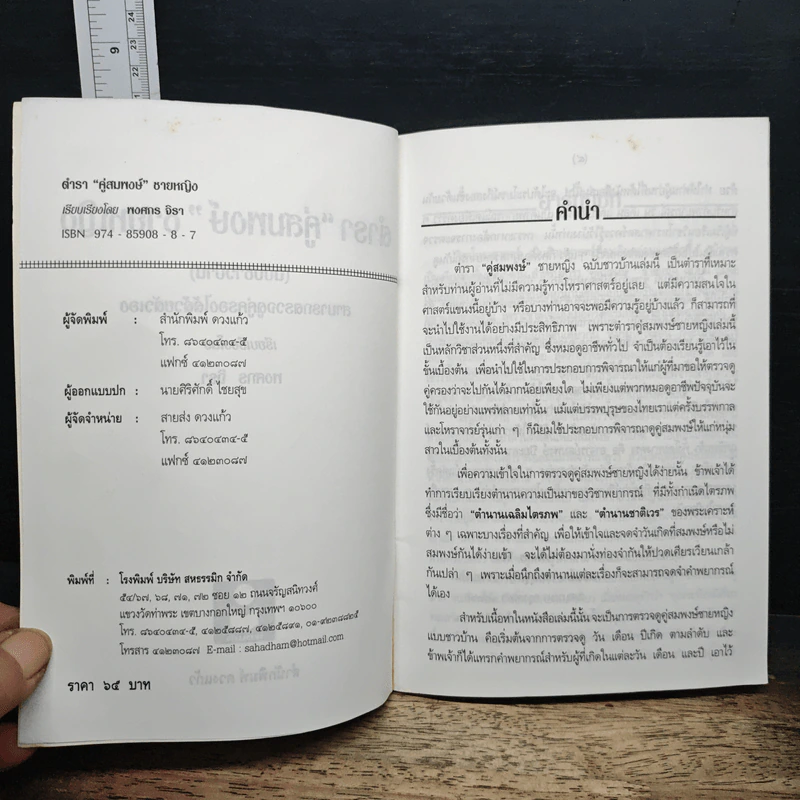 9
24
23
22
21
ตำรา "คู่สมพงษ์" ชายหญิง
เรียบเรียงโดย พงศกร จิรา
ISBN 974 - 85908 - 8 - 7
ผู้จัดพิมพ์ : สำนักพิมพ์ ดวงแก้ว
โทร. ๘๖๔๐๔๓๔-๕
แฟกซ์ ๔๑๒๓๐๘๗
ผู้ออกแบบปก : นายศิริศักดิ์ ไชยสุข
ผู้จัดจำหน่าย : สายส่ง ดวงแก้ว
โทร. ๘๖๔๐๔๓๔-๕
แฟกซ์ ๔๑๒๓๐๘๗
พิมพ์ที่ : โรงพิมพ์ บริษัท สหธรรมิก จำกัด
๕๔/๖๗, ๖๘, ๗๑, ๗๒ ซอย ๑๒ ถนนจรัญสนิทวงศ์
แขวงวัดท่าพระ เขตบางกอกใหญ่ กรุงเทพฯ ๑๐๖๐๐
โทร. ๘๖๔๐๔๓๔-๕, ๔๑๒๕๘๘๗, ๔๑๒๕๘๙๑, ๐๑-๙๒๓๘๘๒๕
โทรสาร ๔๑๒๓๐๘๗ E-mail : sahadham@hotmail.com
ราคา ๖๕ บาท
คำนำ
ตำรา "คู่สมพงษ์" ชายหญิง ฉบับชาวบ้านเล่มนี้ เป็นตำราที่เหมาะ
สำหรับท่านผู้อ่านที่ไม่มีความรู้ทางโหราศาสตร์อยู่เลย แต่มีความสนใจใน
ศาสตร์แขนงนี้อยู่บ้าง หรือบางท่านอาจจะพอมีความรู้อยู่บ้างแล้ว ก็สามารถที่
จะนำไปใช้งานได้อย่างมีประสิทธิภาพ เพราะตำราคู่สมพงษ์ชายหญิงเล่มนี้
เป็นหลักวิชาส่วนหนึ่งที่สำคัญ ซึ่งหมอดูอาชีพทั่วไป จำเป็นต้องเรียนรู้เอาไว้ใน
ชั้นเบื้องต้น เพื่อนำไปใช้ในการประกอบการพิจารณาให้แก่ผู้ที่มาขอให้ตรวจดู
คู่ครองว่าจะไปกันได้มากน้อยเพียงใด ไม่เพียงแต่พวกหมอดูอาชีพปัจจุบันจะ
ใช้กันอยู่อย่างแพร่หลายเท่านั้น แม้แต่บรรพบุรุษของไทยเราแต่ครั้งบรรพกาล
และโหราจารย์รุ่นเก่า ๆ ก็นิยมใช้ประกอบการพิจารณาดูคู่สมพงษ์ให้แก่หนุ่ม
สาวในเบื้องต้นทั้งนั้น
เพื่อความเข้าใจในการตรวจดูคู่สมพงษ์ชายหญิงได้ง่ายนั้น ข้าพเจ้าได้
ทำการเรียบเรียงตำนานความเป็นมาของวิชาพยากรณ์ ที่มีทั้งกำเนิดไตรภพ
ซึ่งมีชื่อว่า "ตำนานเฉลิมไตรภพ" และ "ตำนานชาติเวร" ของพระเคราะห์
ต่าง ๆ เฉพาะบางเรื่องที่สำคัญ เพื่อให้เข้าใจและจดจำวันเกิดที่สมพงษ์หรือไม่
สมพงษ์กันได้ง่ายเข้า จะได้ไม่ต้องมานั่งท่องจำกันให้ปวดเศียรเวียนเกล้า
กันเปล่า ๆ เพราะเมื่อนึกถึงตำนานแต่ละเรื่องก็จะสามารถจดจำคำพยากรณ์
ได้เอง
สำหรับเนื้อหาในหนังสือเล่มนี้นั้น จะเป็นการตรวจดูคู่สมพงษ์ชายหญิง
แบบชาวบ้าน คือเริ่มต้นจากการตรวจดู วัน เดือน ปีเกิด ตามลำดับ และ
ข้าพเจ้าก็ได้แทรกคำพยากรณ์สำหรับผู้ที่เกิดในแต่ละวัน เดือน และปี เอาไว้